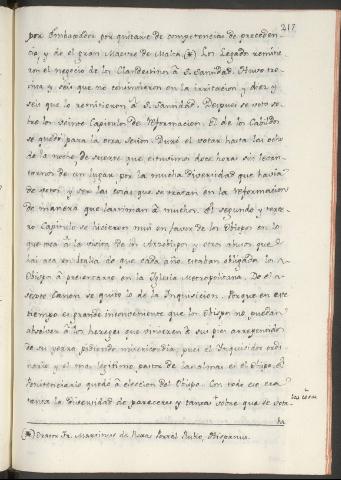 217
por Embaxador por quitarse de competencias de preceden-
cia, y de el gran Maestre de Malta. (*) Los Legados remitie-
ron el negocio de los Clandestinos à S. Santidad. Huvo tre-
inta y seis que no consintieron en la irritacion, y diez y
seis que lo remitieron à S. Santidad. Despues se voto so-
bre los veinte Capitulos de reformacion. El de los Cabildos
se quedò para la otra sesion. Durò el votar hasta las ocho
de la noche de suerte que estuvimos doce horas sin levan-
tarnos de un lugar por la mucha diversidad que havia
de votos y ser las cosas que se tratan en la reformacion
de manera que lastiman à muchos. El segundo y terce-
ro Capitulo se hicieron mui en favor de los Obispos en lo
que toca à la visita de los Arzobispos y otros abusos que
hai acà en Italia de que cada año estaban obligados los
Obispos à presentarse en la Iglesia Metropolitana. De el
sexto Canon se quitò lo de la Inquisicion. Porque en este
tiempo es grande inconveniente que los Obispos no puedan
absolver à los hereges que vinieren à sus pies arrepentidos
de su yerro pidiendo misericordia; pues el Inquisidor ordi-
nario y el mas legitimo pastor de las almas es el Obispo. El
Penitenciario quedò à eleccion del Obispo. Con todo eso era
tanta la diversidad de pareceres y tantas sobre que se vota-
las cosas
ba
(*) Orator Fr. Martinus de Roxas Portel Rubio, Hispanus.